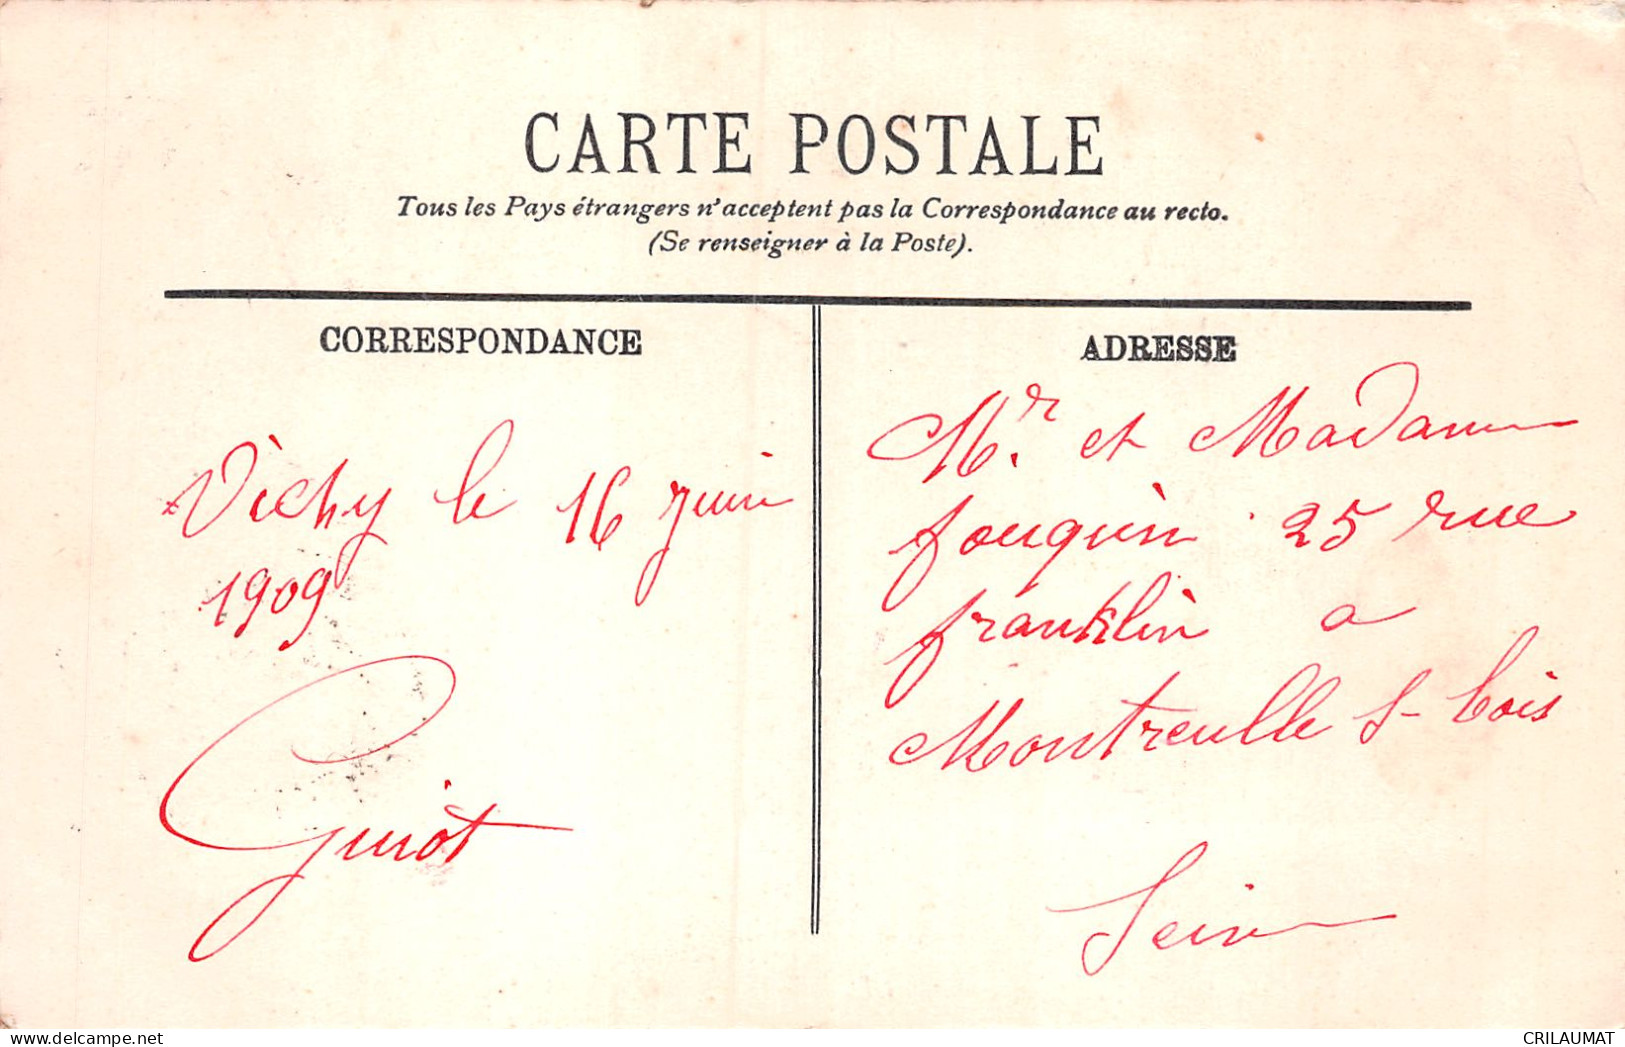 CARTE POSTALE
Tous les Pays étrangers n'acceptent pas la Correspondance au recto.
(Se renseigner à la Poste).
CORRESPONDANCE
Vichy le 16 juin
1909
Guiot
ADRESSE
Mr. et Madame
fouquin 25 rue
franklin a
Montreulle s- bois
Seine
CRILAUMAT